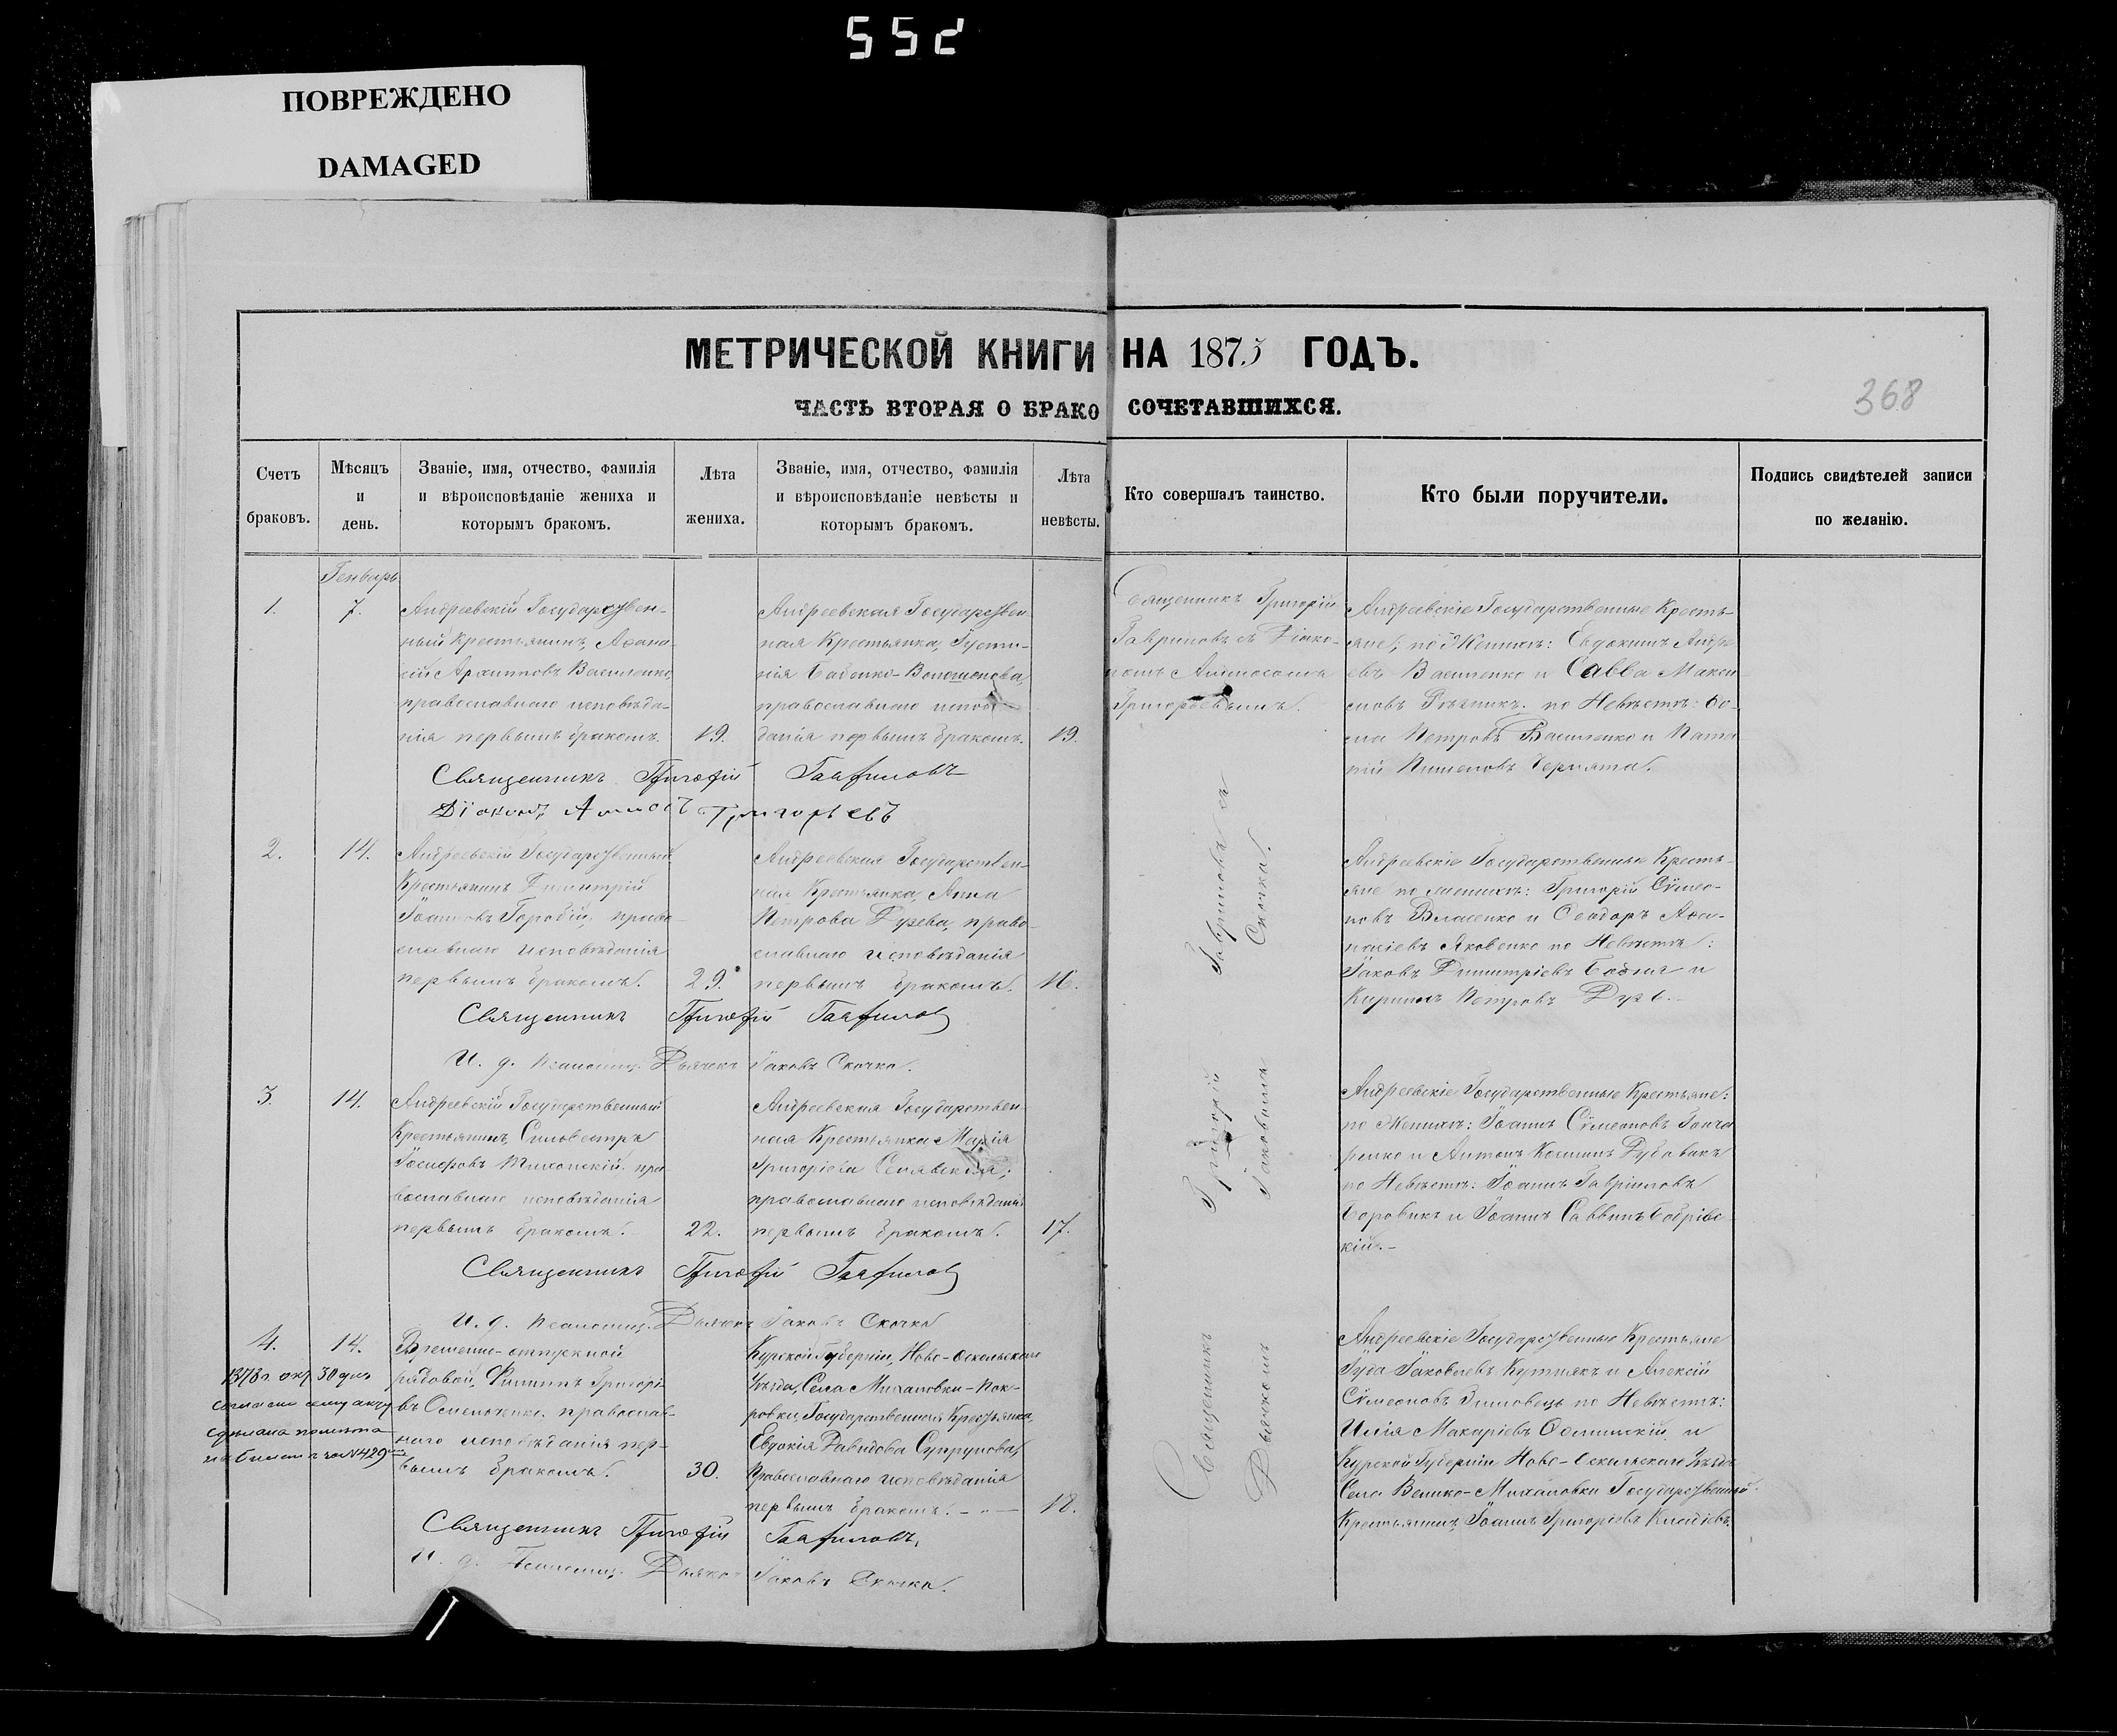 552
ПОВРЕЖДЕНО
DAMAGED
МЕТРИЧЕСКОЙ КНИГИ НА 1875 ГОДЪ.
ЧАСТЬ ВТОРАЯ О БРАКОСОЧЕТАВШИХСЯ.
368
Счетъ браковъ.
Мѣсяцъ и день.
Званіе, имя, отчество, фамилія и вѣроисповѣданіе жениха и которымъ бракомъ.
Лѣта жениха.
Званіе, имя, отчество, фамилія и вѣроисповѣданіе невѣсты и которымъ бракомъ.
Лѣта невѣсты.
Кто совершалъ таинство.
Кто были поручители.
Подпись свидѣтелей записи по желанію.
Генварь
1.
7.
Андреевскій Государствен-
ный Крестьянинъ, Аѳана-
сій Архиповъ Василенко,
православнаго исповѣда-
нія первымъ бракомъ.
19.
Андреевская Государствен-
ная Крестьянка, Іусти-
нія
православнаго исповѣ-
данія первымъ бракомъ.
19.
Священникъ Григорій
Гавриловъ съ Діако-
номъ
Григорьевымъ.
Андреевскіе Государственные Кресть-
яне, по Женихѣ: Евдокимъ Андре-
евъ Василенко и Савва Макси-
мовъ по Невѣстѣ: Ѳо-
ма Петровъ Василенко и
Священникъ Григорій Гавриловъ
Діаконъ Григорьевъ
2.
14.
Андреевскій Государственный
Крестьянинъ Димитрій
Іоанновъ Горобій, право-
славнаго исповѣданія
первымъ бракомъ.
29.
Андреевская Государствен-
ная Крестьянка, Анна
Петрова Дузева, право-
славнаго исповѣданія
первымъ бракомъ.
16.
Андреевскіе Государственные Кресть-
яне по женихѣ: Григорій Сѵмео-
новъ Власенко и Ѳеодоръ Аѳа-
насіевъ Яковенко по Невѣстѣ:
Іаковъ Димитріевъ Бодня и
Кириллъ Петровъ Дузь.
Священникъ Григорій Гавриловъ
И. д. Псаломщ. Дьячекъ Іаковъ Скочко.
3.
14.
Андреевскій Государственный
Крестьянинъ, Сильвестръ
Іосифовъ Тихонскій, пра-
вославнаго исповѣданія
первымъ бракомъ.
22.
Андреевская Государствен-
ная Крестьянка Марія
Григоріева
православнаго исповѣданія
первымъ бракомъ.
17.
Андреевскіе Государственные Крестьяне:
по Женихѣ: Іоаннъ Сѵмеоновъ Гонча-
ренко и Антонъ Косминъ
по Невѣстѣ: Іоаннъ Гавріиловъ
Боровикъ и Іоаннъ Саввинъ Бобрівс-
кій.
Священникъ Григорій Гавриловъ
И. д. Псаломщ. Дьячекъ Іаковъ Скочко
4.
14.
1878 г. окт 30 дня
согласно сему акту
сдѣлана помѣтка
на билетѣ за №429
Временно-отпускной
рядовой, Филиппъ Григорі-
въ православ-
наго исповѣданія пер-
вымъ бракомъ.
30.
Курской Губерніи, Ново-Оскольскаго
Уѣзда, Села Михаловки-Пок-
ровки, Государственная Крестьянка,
Евдокія Давидова Супрунова,
Православнаго исповѣданія
первымъ бракомъ.
18.
Священникъ Григорій Гавриловъ съ
Дьячкомъ Іаковомъ Скочко.
Андреевскіе Государственные Крестьяне
Іуда Іаковлевъ и Алексій
Сѵмеоновъ Зимовецъ по Невѣстѣ:
Илія Макаріевъ и
Курской Губерніи Ново-Оскольскаго Уѣзда
Села Велико-Михаловки Государственный
Крестьянинъ, Іоаннъ Григоріевъ
Священникъ Григорій Гавриловъ,
И. д. Псаломщ. Дьячекъ Іаковъ Скочко.